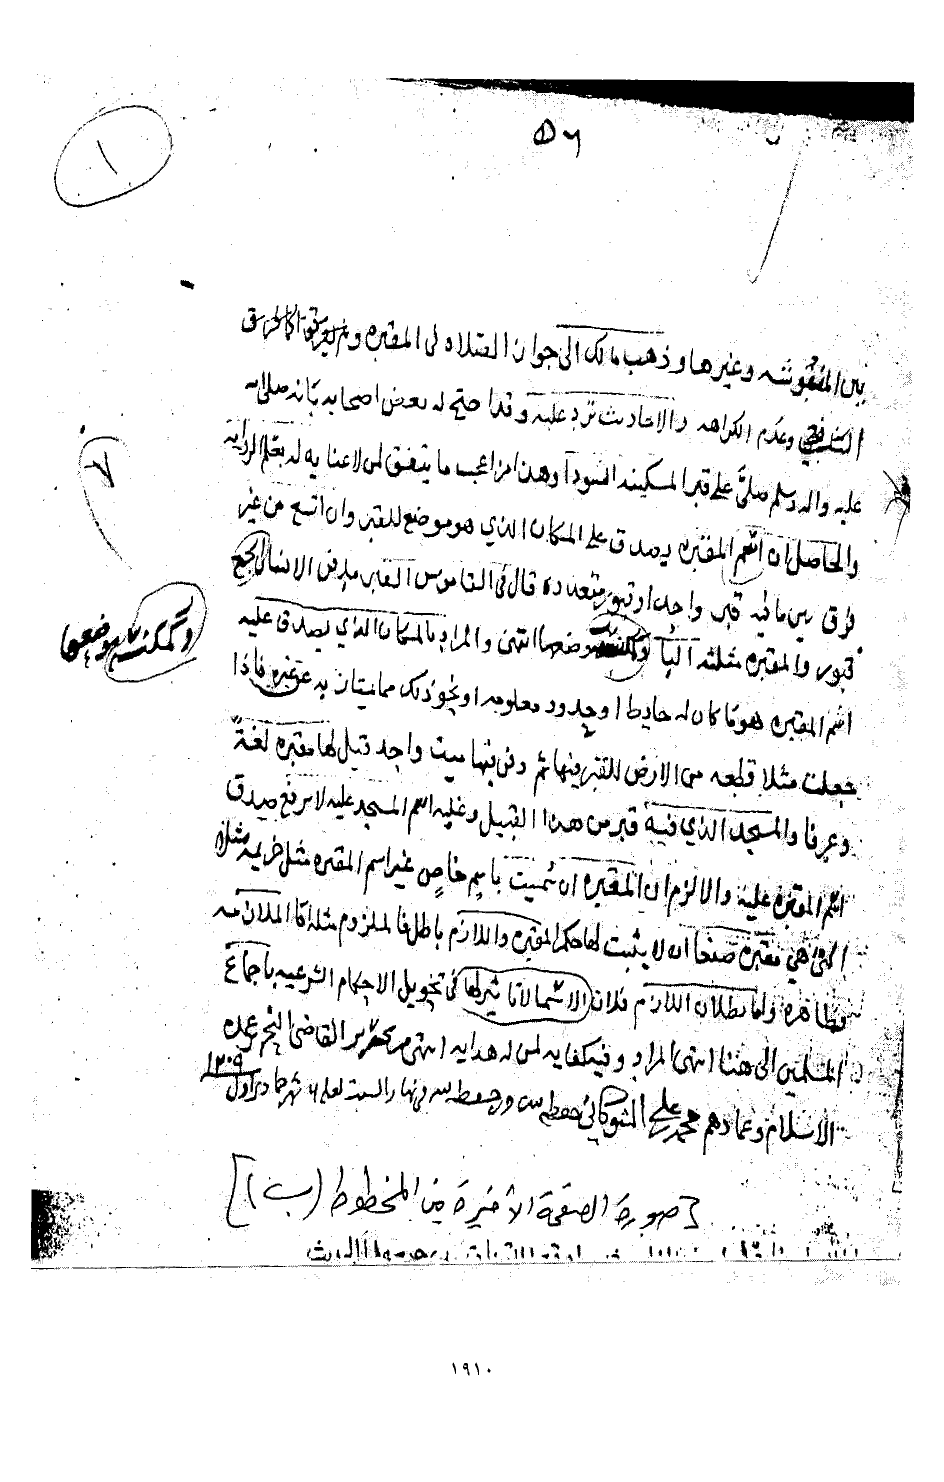 ٥٦
١
٧
بين المنبوشه وغيرها وذهب مالك الى جواز الصلاه في المقبره
وعدم الكراهه والاحاديث ترد عليه وقد احتج له بعض اصحابه بانه صلى الله
عليه واله وسلم صلى على قبر المسكينه السودآ وهذا من اعجب ما يتفق لمن لا عنايه له بعلم الروايه
والحاصل ان اسم المقبره يصدق على المكان الذي هو موضع للقبر وان اتسع من غير
فرق بين ما فيه قبر واحد او قبور متعدده قال في القاموس القبر مدفن الانسان الجمع
قبور والمقبره مثلثة البآ موضعها انتهى والمراد بالمكان الذي يصدق عليه
وكمكنسة موضعها
اسم المقبره هو ما كان له حايط او حدود معلومه او نحو ذلك مما يمتاز به عن غيره فاذا
جعلت مثلا قطعه من الارض للقبر فيها ثم دفن فيها ميت واحد قيل لها مقبره لغة
وعرفا والمسجد الذي فيه قبر من هذا القبيل وغلبه اسم المسجد عليه لا يرفع صدق
اسم المقبره عليه والا لزم ان المقبره ان سميت باسم خاص غير اسم المقبره مثل خزيمه مثلا
التي هي مقبرة صنعا ان لا يثبت لها حكم المقبره واللازم باطل فالملزوم مثله اما الملازمه
فظاهره واما بطلان اللازم فلان الاسما لا تاثير لها في تحويل الاحكام الشرعيه باجماع
المسلمين الى هنا انتهى المراد وفيه كفايه لمن له هدايه انتهى من تحرير القاضي
الاسلام وعمادهم محمد بن علي الشوكاني حفظه الله في نهار السبت لعله ٦ شهر جمادى اول
١٢٠٩
[صورة الصفحة الأخيرة من المخطوط (ب)]
١٩١٠